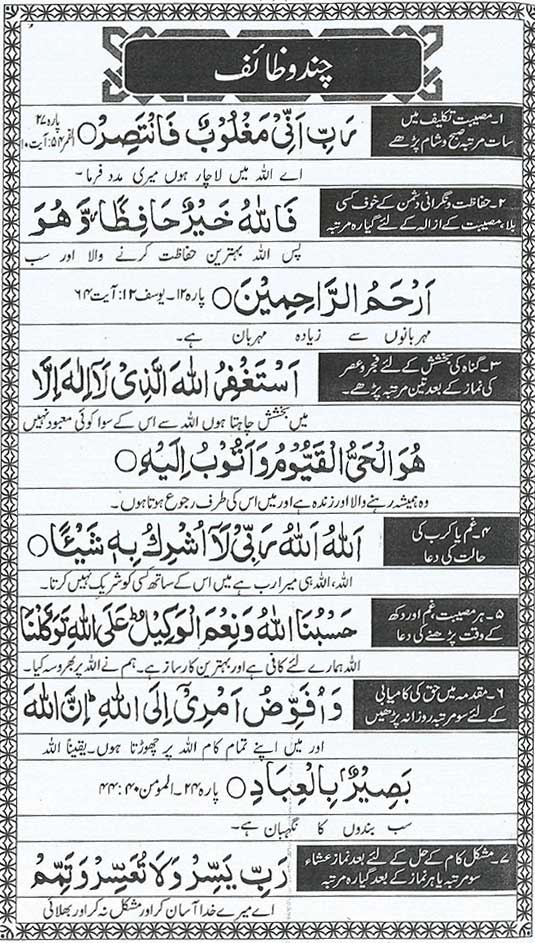 چند وظائف
۱۔ مصیبت تکلیف میں
سات مرتبہ صبح و شام پڑھے
رَبِّ اَنِّیْ مَغْلُوْبٌ فَانْتَصِرْ
پارہ ۲۷
القمر ۵۴: آیت ۱۰
اے اللہ میں لاچار ہوں میری مدد فرما۔
۲۔ حفاظت و نگرانی دشمن کے خوف کسی
بلا، مصیبت کے ازالہ کے لئے گیارہ مرتبہ
فَاللّٰهُ خَیْرٌ حَافِظًا وَّ هُوَ
پس اللہ بہترین حفاظت کرنے والا اور سب
اَرْحَمُ الرَّاحِمِیْنَ
پارہ ۱۲۔ یوسف ۱۲: آیت ۶۴
مہربانوں سے زیادہ مہربان ہے۔
۳۔ گناہ کی بخشش کے لئے فجر و عصر
کی نماز کے بعد تین مرتبہ پڑھے۔
اَسْتَغْفِرُ اللّٰهَ الَّذِیْ لَآ اِلٰهَ اِلَّا
میں بخشش چاہتا ہوں اللہ سے اس کے سوا کوئی معبود نہیں
هُوَ الْحَیُّ الْقَیُّوْمُ وَاَتُوْبُ اِلَیْهِ
وہ ہمیشہ رہنے والا اور زندہ ہے اور میں اس کی طرف رجوع ہوتا ہوں۔
۴۔ غم یا کرب کی
حالت کی دعا
اَللّٰهُ اَللّٰهُ رَبِّیْ لَآ اُشْرِكُ بِهٖ شَیْئًا
اللہ، اللہ ہی میرا رب ہے میں اس کے ساتھ کسی کو شریک نہیں کرتا۔
۵۔ ہر مصیبت، غم اور دکھ
کے وقت پڑھنے کی دعا
حَسْبُنَا اللّٰهُ وَنِعْمَ الْوَكِیْلُ عَلَی اللّٰهِ تَوَكَّلْنَا
اللہ ہمارے لئے کافی ہے اور بہترین کارساز ہے۔ ہم نے اللہ پر بھروسہ کیا۔
۶۔ مقدمہ میں حق کی کامیابی
کے لئے سو مرتبہ روزانہ پڑھیں
وَاُفَوِّضُ اَمْرِیْٓ اِلَی اللّٰهِ اِنَّ اللّٰهَ
اور میں اپنے تمام کام اللہ پر چھوڑتا ہوں۔ یقیناً اللہ
بَصِیْرٌۢ بِالْعِبَادِ
پارہ ۲۴۔ المومن ۴۰: ۴۴
سب بندوں کا نگہبان ہے۔
۷۔ مشکل کام کے حل کے لئے بعد نماز عشاء
سو مرتبہ یا ہر نماز کے بعد گیارہ مرتبہ
رَبِّ یَسِّرْ وَلَا تُعَسِّرْ وَتَمِّمْ
اے میرے خدا آسان کر اور مشکل نہ کر اور بھلائی